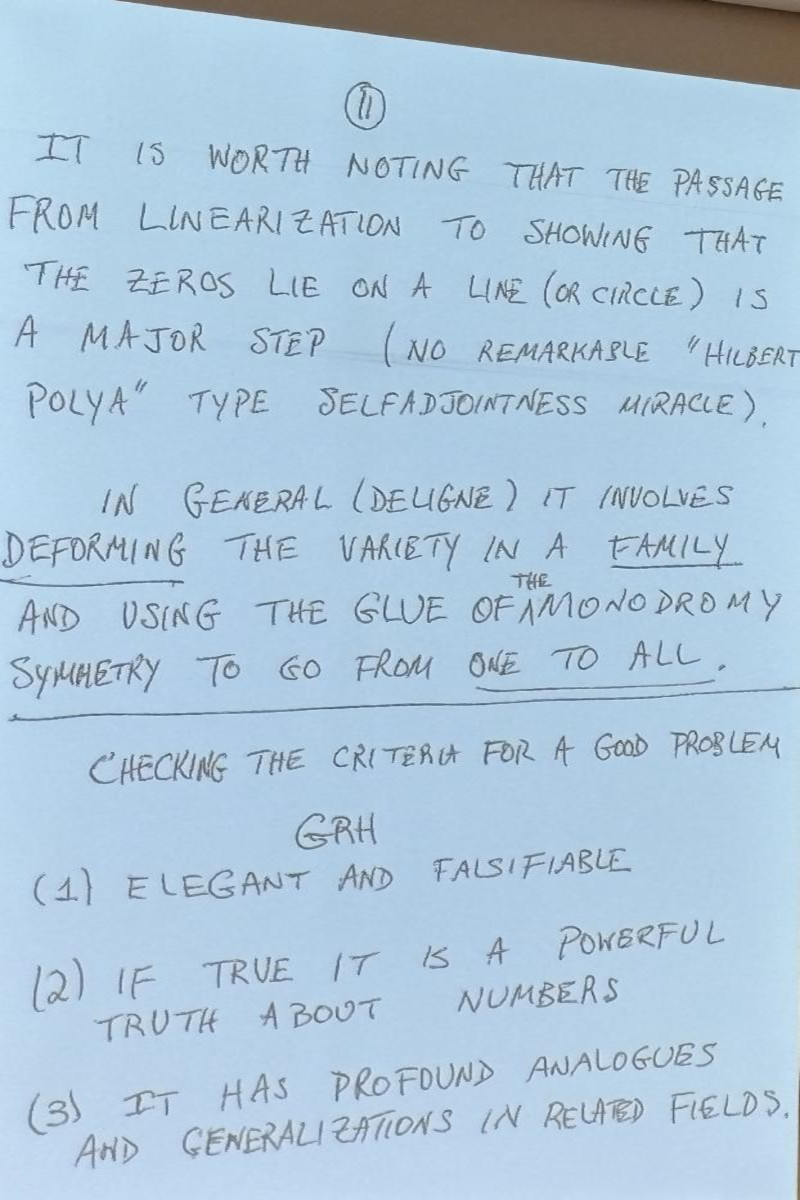 11
IT IS WORTH NOTING THAT THE PASSAGE
FROM LINEARIZATION TO SHOWING THAT
THE ZEROS LIE ON A LINE (OR CIRCLE) IS
A MAJOR STEP (NO REMARKABLE "HILBERT
POLYA" TYPE SELFADJOINTNESS MIRACLE).
IN GENERAL (DELIGNE) IT INVOLVES
DEFORMING THE VARIETY IN A FAMILY
AND USING THE GLUE OF THE MONODROMY
SYMMETRY TO GO FROM ONE TO ALL.
CHECKING THE CRITERIA FOR A GOOD PROBLEM
GRH
(1) ELEGANT AND FALSIFIABLE
(2) IF TRUE IT IS A POWERFUL
TRUTH ABOUT NUMBERS
(3) IT HAS PROFOUND ANALOGUES
AND GENERALIZATIONS IN RELATED FIELDS.